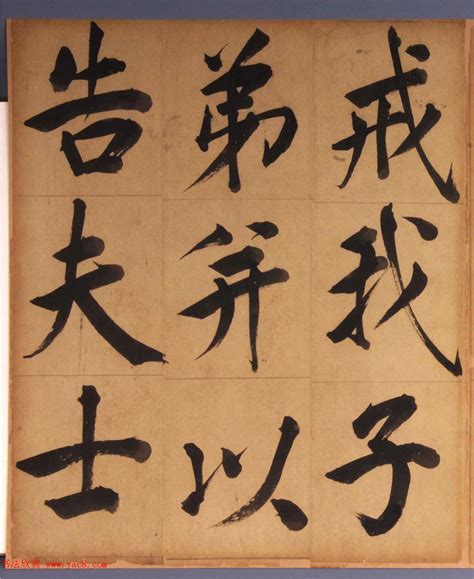 戒我子
弟并以
告夫士
书法欣赏 www.yac8.com